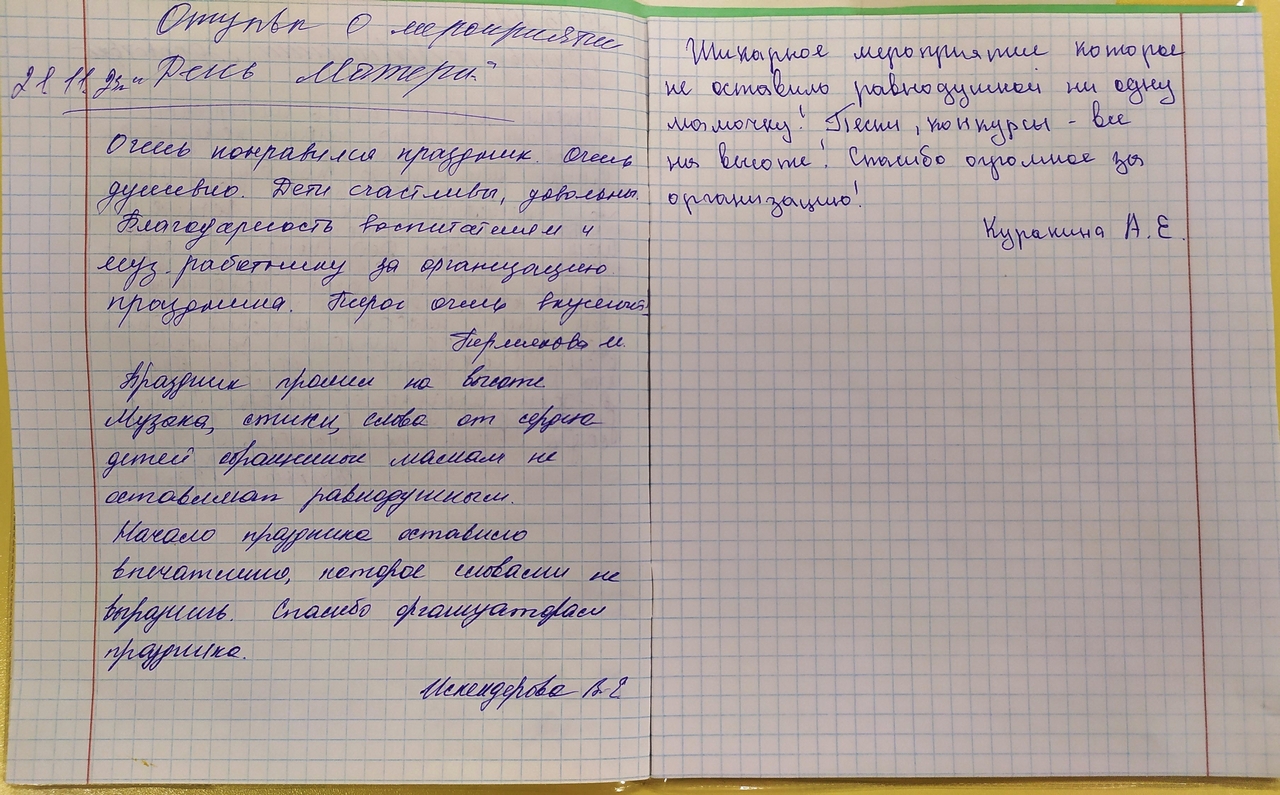 Отзывы о мероприятии
28.11.23г. "День Матери"
Очень понравился праздник. Очень
душевно. Дети счастливы, довольны.
Благодарность воспитателям и
муз. работнику за организацию
праздника. Пирог очень вкусный.
Пермякова М.
Праздник прошел на высоте
Музыка, стихи, слова от сердца
детей обращенные мамам не
оставляют равнодушным.
Начало праздника оставило
впечатление, которое словами не
выразишь. Спасибо организаторам
праздника.
Искендерова В.Е
Шикарное мероприятие которое
не оставило равнодушной ни одну
мамочку! Песни, конкурсы - все
на высоте! Спасибо огромное за
организацию!
Куракина А.Е.